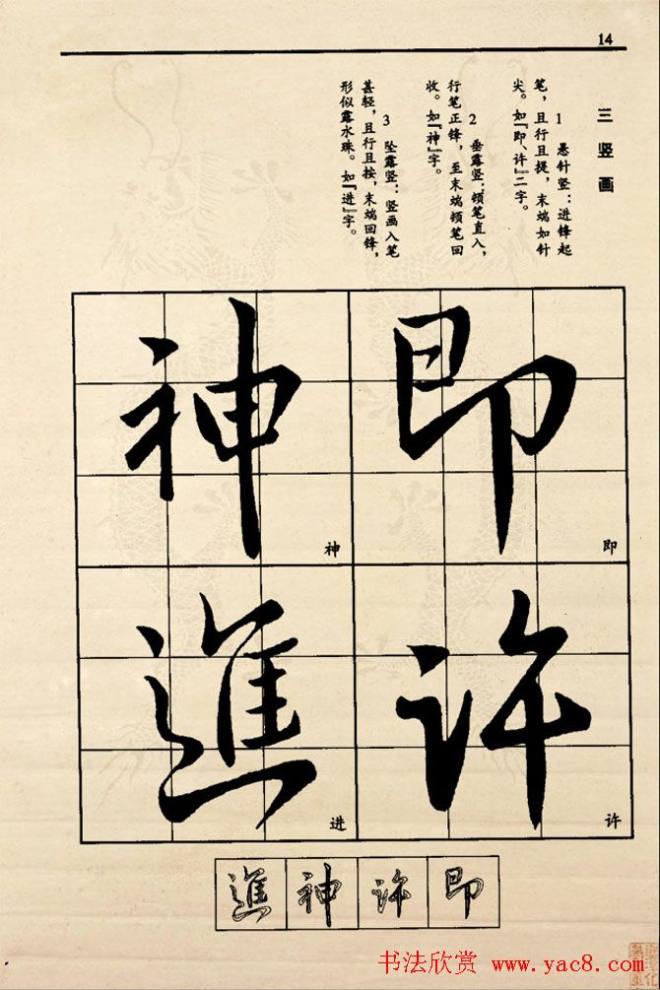 14
三 竖画
1 悬针竖：进锋起
笔，且行且提，末端如针
尖。如『即、许』二字。
2 垂露竖：顿笔直入，
行笔正锋，至末端顿笔回
收。如『神』字。
3 坠露竖：竖画入笔
甚轻，且行且按，末端回锋，
形似露水珠。如『进』字。
即
即
许
许
神
神
進
进
進神许即
书法欣赏 www.yac8.com